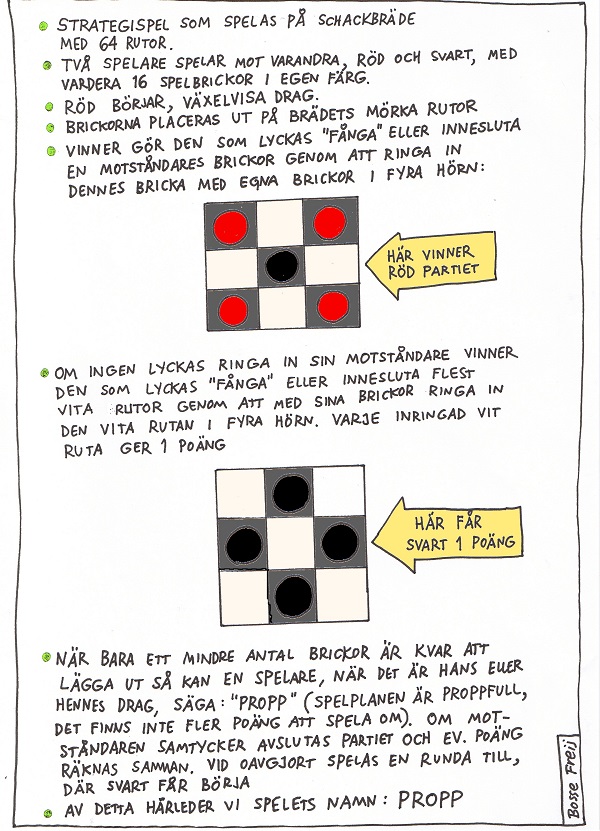 STRATEGISPEL SOM SPELAS PÅ SCHACKBRÄDE
MED 64 RUTOR.
TVÅ SPELARE SPELAR MOT VARANDRA, RÖD OCH SVART, MED
VARDERA 16 SPELBRICKOR I EGEN FÄRG.
RÖD BÖRJAR, VÄXELVISA DRAG.
BRICKORNA PLACERAS UT PÅ BRÄDETS MÖRKA RUTOR
VINNER GÖR DEN SOM LYCKAS "FÅNGA" ELLER INNESLUTA
EN MOTSTÅNDARES BRICKOR GENOM ATT RINGA IN
DENNES BRICKA MED EGNA BRICKOR I FYRA HÖRN:
HÄR VINNER
RÖD PARTIET
OM INGEN LYCKAS RINGA IN SIN MOTSTÅNDARE VINNER
DEN SOM LYCKAS "FÅNGA" ELLER INNESLUTA FLEST
VITA RUTOR GENOM ATT MED SINA BRICKOR RINGA IN
DEN VITA RUTAN I FYRA HÖRN. VARJE INRINGAD VIT
RUTA GER 1 POÄNG
HÄR FÅR
SVART 1 POÄNG
NÄR BARA ETT MINDRE ANTAL BRICKOR ÄR KVAR ATT
LÄGGA UT SÅ KAN EN SPELARE, NÄR DET ÄR HANS ELLER
HENNES DRAG, SÄGA: "PROPP" (SPELPLANEN ÄR PROPPFULL,
DET FINNS INTE FLER POÄNG ATT SPELA OM). OM MOT-
STÅNDAREN SAMTYCKER AVSLUTAS PARTIET OCH EV. POÄNG
RÄKNAS SAMMAN. VID OAVGJORT SPELAS EN RUNDA TILL,
DÄR SVART FÅR BÖRJA
AV DETTA HÄRLEDER VI SPELETS NAMN: PROPP
Bosse Freij